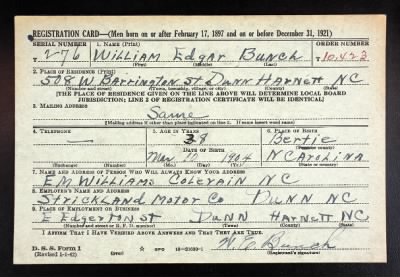 REGISTRATION CARD—(Men born on or after February 17, 1897 and on or before December 31, 1921)
SERIAL NUMBER 1. NAME (Print) ORDER NUMBER
T 276 William Edgar Bunch T 10,423
(First) (Middle) (Last)
2. PLACE OF RESIDENCE (Print)
508 W Barrington St Dunn Harnett NC
(Number and street) (Town, township, village, or city) (County) (State)
[THE PLACE OF RESIDENCE GIVEN ON THE LINE ABOVE WILL DETERMINE LOCAL BOARD
JURISDICTION; LINE 2 OF REGISTRATION CERTIFICATE WILL BE IDENTICAL]
3. MAILING ADDRESS
Same
[Mailing address if other than place indicated on line 2. If same insert word same]
4. TELEPHONE 5. AGE IN YEARS 6. PLACE OF BIRTH
— 38 Bertie
DATE OF BIRTH (Town or county)
Mar 1904 N Carolina
(Exchange) (Number) (Mo.) (Day) (Yr.) (State or country)
7. NAME AND ADDRESS OF PERSON WHO WILL ALWAYS KNOW YOUR ADDRESS
EM Williams Colerain NC
8. EMPLOYER'S NAME AND ADDRESS
Strickland Motor Co Dunn NC
9. PLACE OF EMPLOYMENT OR BUSINESS
E Edgerton St Dunn Harnett NC
(Number and street or R. F. D. number) (Town) (County) (State)
I AFFIRM THAT I HAVE VERIFIED ABOVE ANSWERS AND THAT THEY ARE TRUE.
D. S. S. Form 1
(Revised 1-1-42) GPO 16—21630-1 W. E. Bunch
(Registrant's signature)